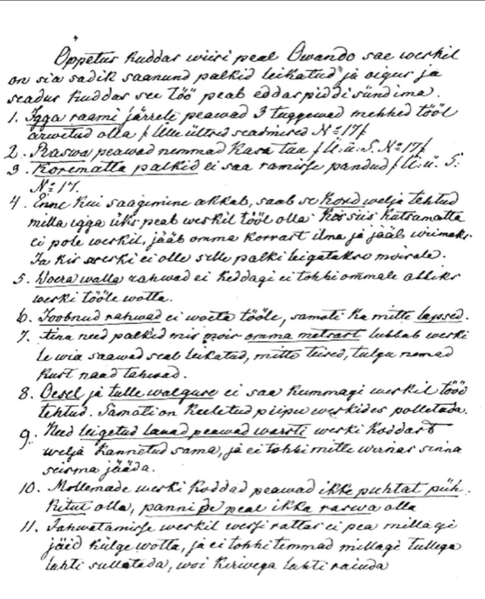 Öppetus kuddar wiisi peal Owando sae weskil
on sia sadik saanund palkid leikatud ja oigus ja
seadus kuddar see töö peab eddaspiddi sündima.
1. Igga raami järrele peawad 3 tuggewad mehhed tööl
ärwetud olla f. Ülle ültred seadmised No 17f
2. Raswa peawad nemmad kasa toa f. U. ü. S. No 17f
3. Korematta palkid ei saa ramisse pandud f. U. ü. S.
No 17.
4. Enne kui saagimine akkab, saab se kord welja tehtud
milla igga üks peab weskil tööl olla. Kes siis kutsumatta
ei pole weskil, jääb omma korrast ilma ja jääb wiimaks.
Ja kis weski ei olle selle palki leigatakse moisale.
5. Woera walla rahwad ei keddagi ei tohhi ommale abbiks
weski tööle wotta.
6. Joobnud rahwad ei woeta tööle, samoti ka mitte lapsed.
7. Aina need palkid mis mois omma metsast lubbab weski
le wia saawad seal leikatud, mitte teised, tulgu nemad
kust naad tahwad.
8. Oesel ja tulle walguse ei saa kummagi weskil tööd
tehtud. Samoti on keeletud piipu weskides polletada.
9. Need leigetud lauad peawad warsti weski koddast
welja kannetud sama, ja ei tohhi mitte wirnas sinna
seisma jääda.
10. Mollemade weski koddad peawad ikke puhtat püh-
kitut olla, panni pe peal ikka raswa olla
11. Jahwatamisse weskil wessi rattas ei pea millagi
jäid külge wotta, ja ei tohhi temmad millagi tullega
lahti sullatada, woi kirwega lahti raiuda